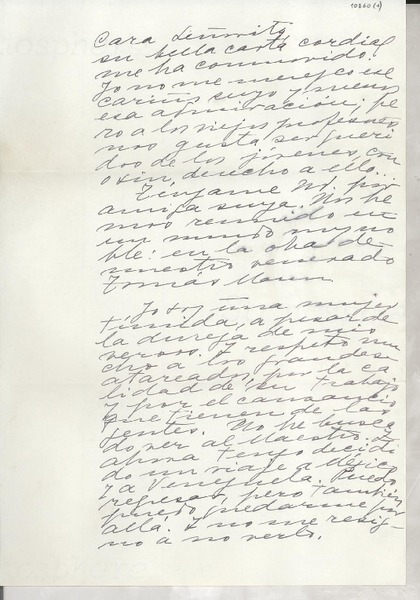 10860 (4)
Cara Señorita,
su bella carta cordial
me ha conmovido.
Yo no me merezco ese
cariño suyo y menos
esa admiración; pe
ro a los viejos profesores
nos gusta ser queri
dos de los jóvenes, con
o sin derecho a ello...
Téngame Ud. por
amiga suya. Nos he
mos reunido en
un mundo muy no
ble: en la obra de
nuestro venerado
Tomás Mann
Yo soy una mujer
tímida, a pesar de
la dureza de mis
versos. Y respeto mu
cho a los grandes
atareados, por la ca
lidad de su trabajo
y por el cansancio
que tienen de las
gentes. No he busca
do ver al Maestro. Y
ahora tengo decidi
do un viaje a Méjico
y a Venezuela. Puedo
regresar, pero también
puedo quedarme por
allá. Y no me resig
no a no verlo.